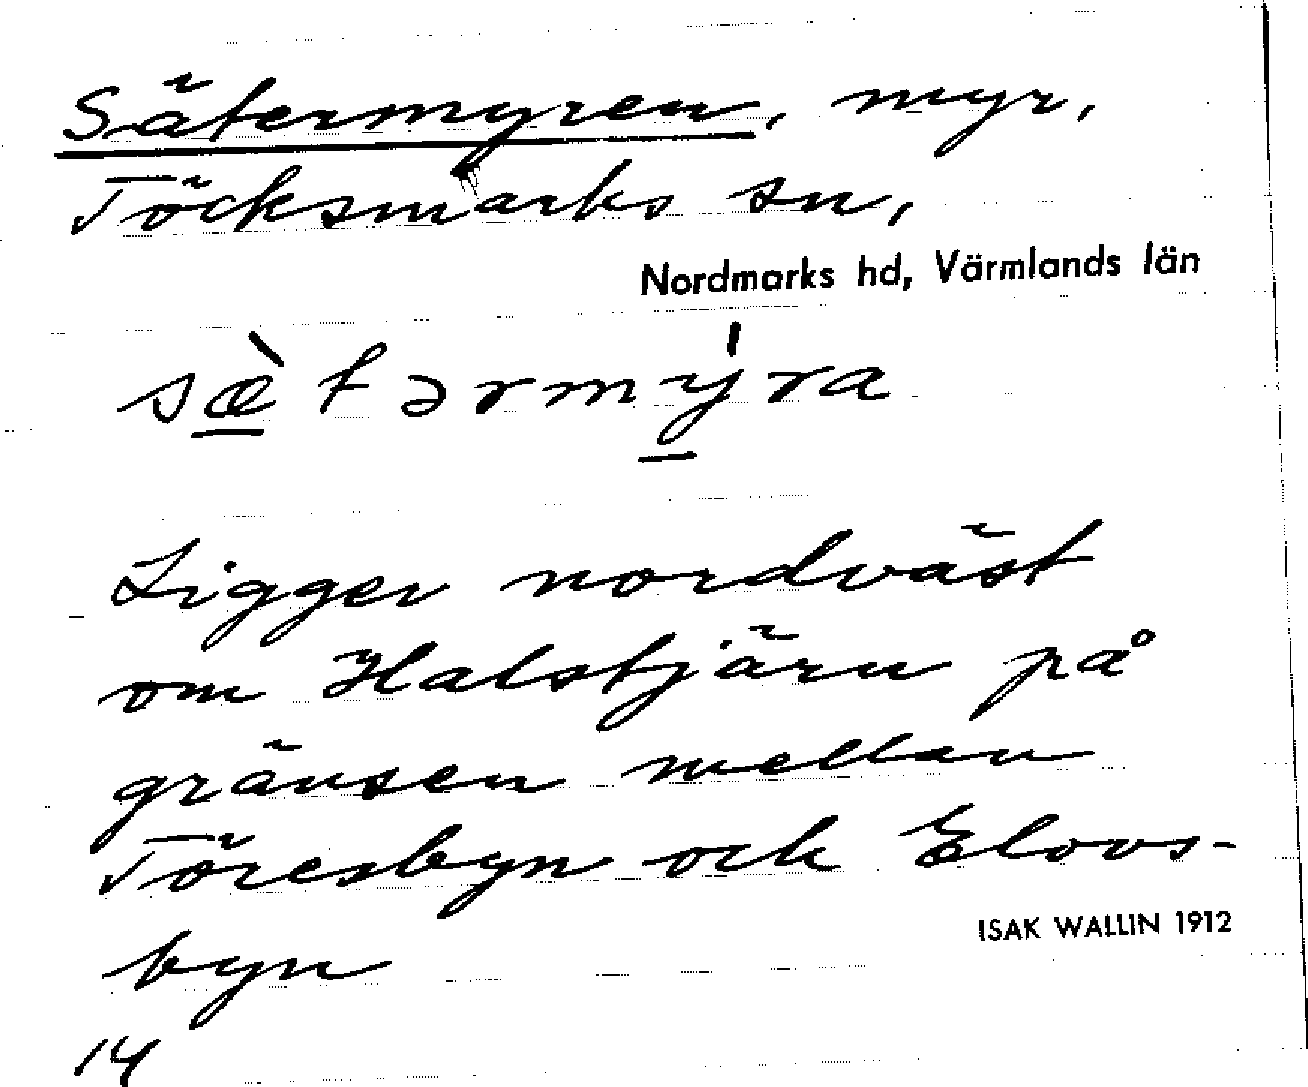 Sätermyren, myr,
Töcksmarks sn,
Nordmarks hd, Värmlands län
sæ̠̀tərmý̠ra
Ligger nordväst
om Halstjärn på
gränsen mellan
Töresbyn och Elovs-
byn
ISAK WALLIN 1912
14